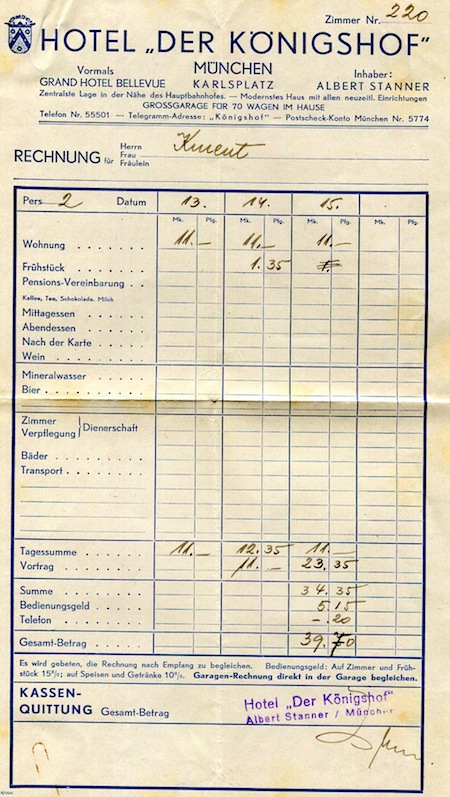 Zimmer Nr. 220
HOTEL „DER KÖNIGSHOF"
Vormals MÜNCHEN Inhaber:
GRAND HOTEL BELLEVUE KARLSPLATZ ALBERT STANNER
Zentralste Lage in der Nähe des Hauptbahnhofes. — Modernstes Haus mit allen neuzeitl. Einrichtungen
GROSSGARAGE FÜR 70 WAGEN IM HAUSE
Telefon Nr. 55501 — Telegramm-Adresse: „Königshof" — Postscheck-Konto München Nr. 5774
RECHNUNG für Herrn Frau Fräulein Kment
Pers 2 Datum 13. 14. 15.
Mk. Pfg. Mk. Pfg. Mk. Pfg. Mk. Pfg.
Wohnung . . . . . . . 11.— 11.— 11.—
Frühstück . . . . . . 1.35
Pensions-Vereinbarung . .
Kaffee, Tee, Schokolade, Milch
Mittagessen . . . . . .
Abendessen . . . . . .
Nach der Karte . . . . .
Wein . . . . . . . .
Mineralwasser . . . . .
Bier . . . . . . . . .
Zimmer
Verpflegung } Dienerschaft
Bäder . . . . . . . .
Transport . . . . . . .
Tagessumme . . . . . . 11.— 12.35 11.—
Vortrag . . . . . . . 11.— 23.35
Summe . . . . . . . 34.35
Bedienungsgeld . . . . . 5.15
Telefon . . . . . . . —.20
Gesamt-Betrag . . . . . 39.70
Es wird gebeten, die Rechnung nach Empfang zu begleichen. Bedienungsgeld: Auf Zimmer und Früh-
stück 15%; auf Speisen und Getränke 10%. Garagen-Rechnung direkt in der Garage begleichen.
KASSEN-
QUITTUNG Gesamt-Betrag
Hotel „Der Königshof"
Albert Stanner / München